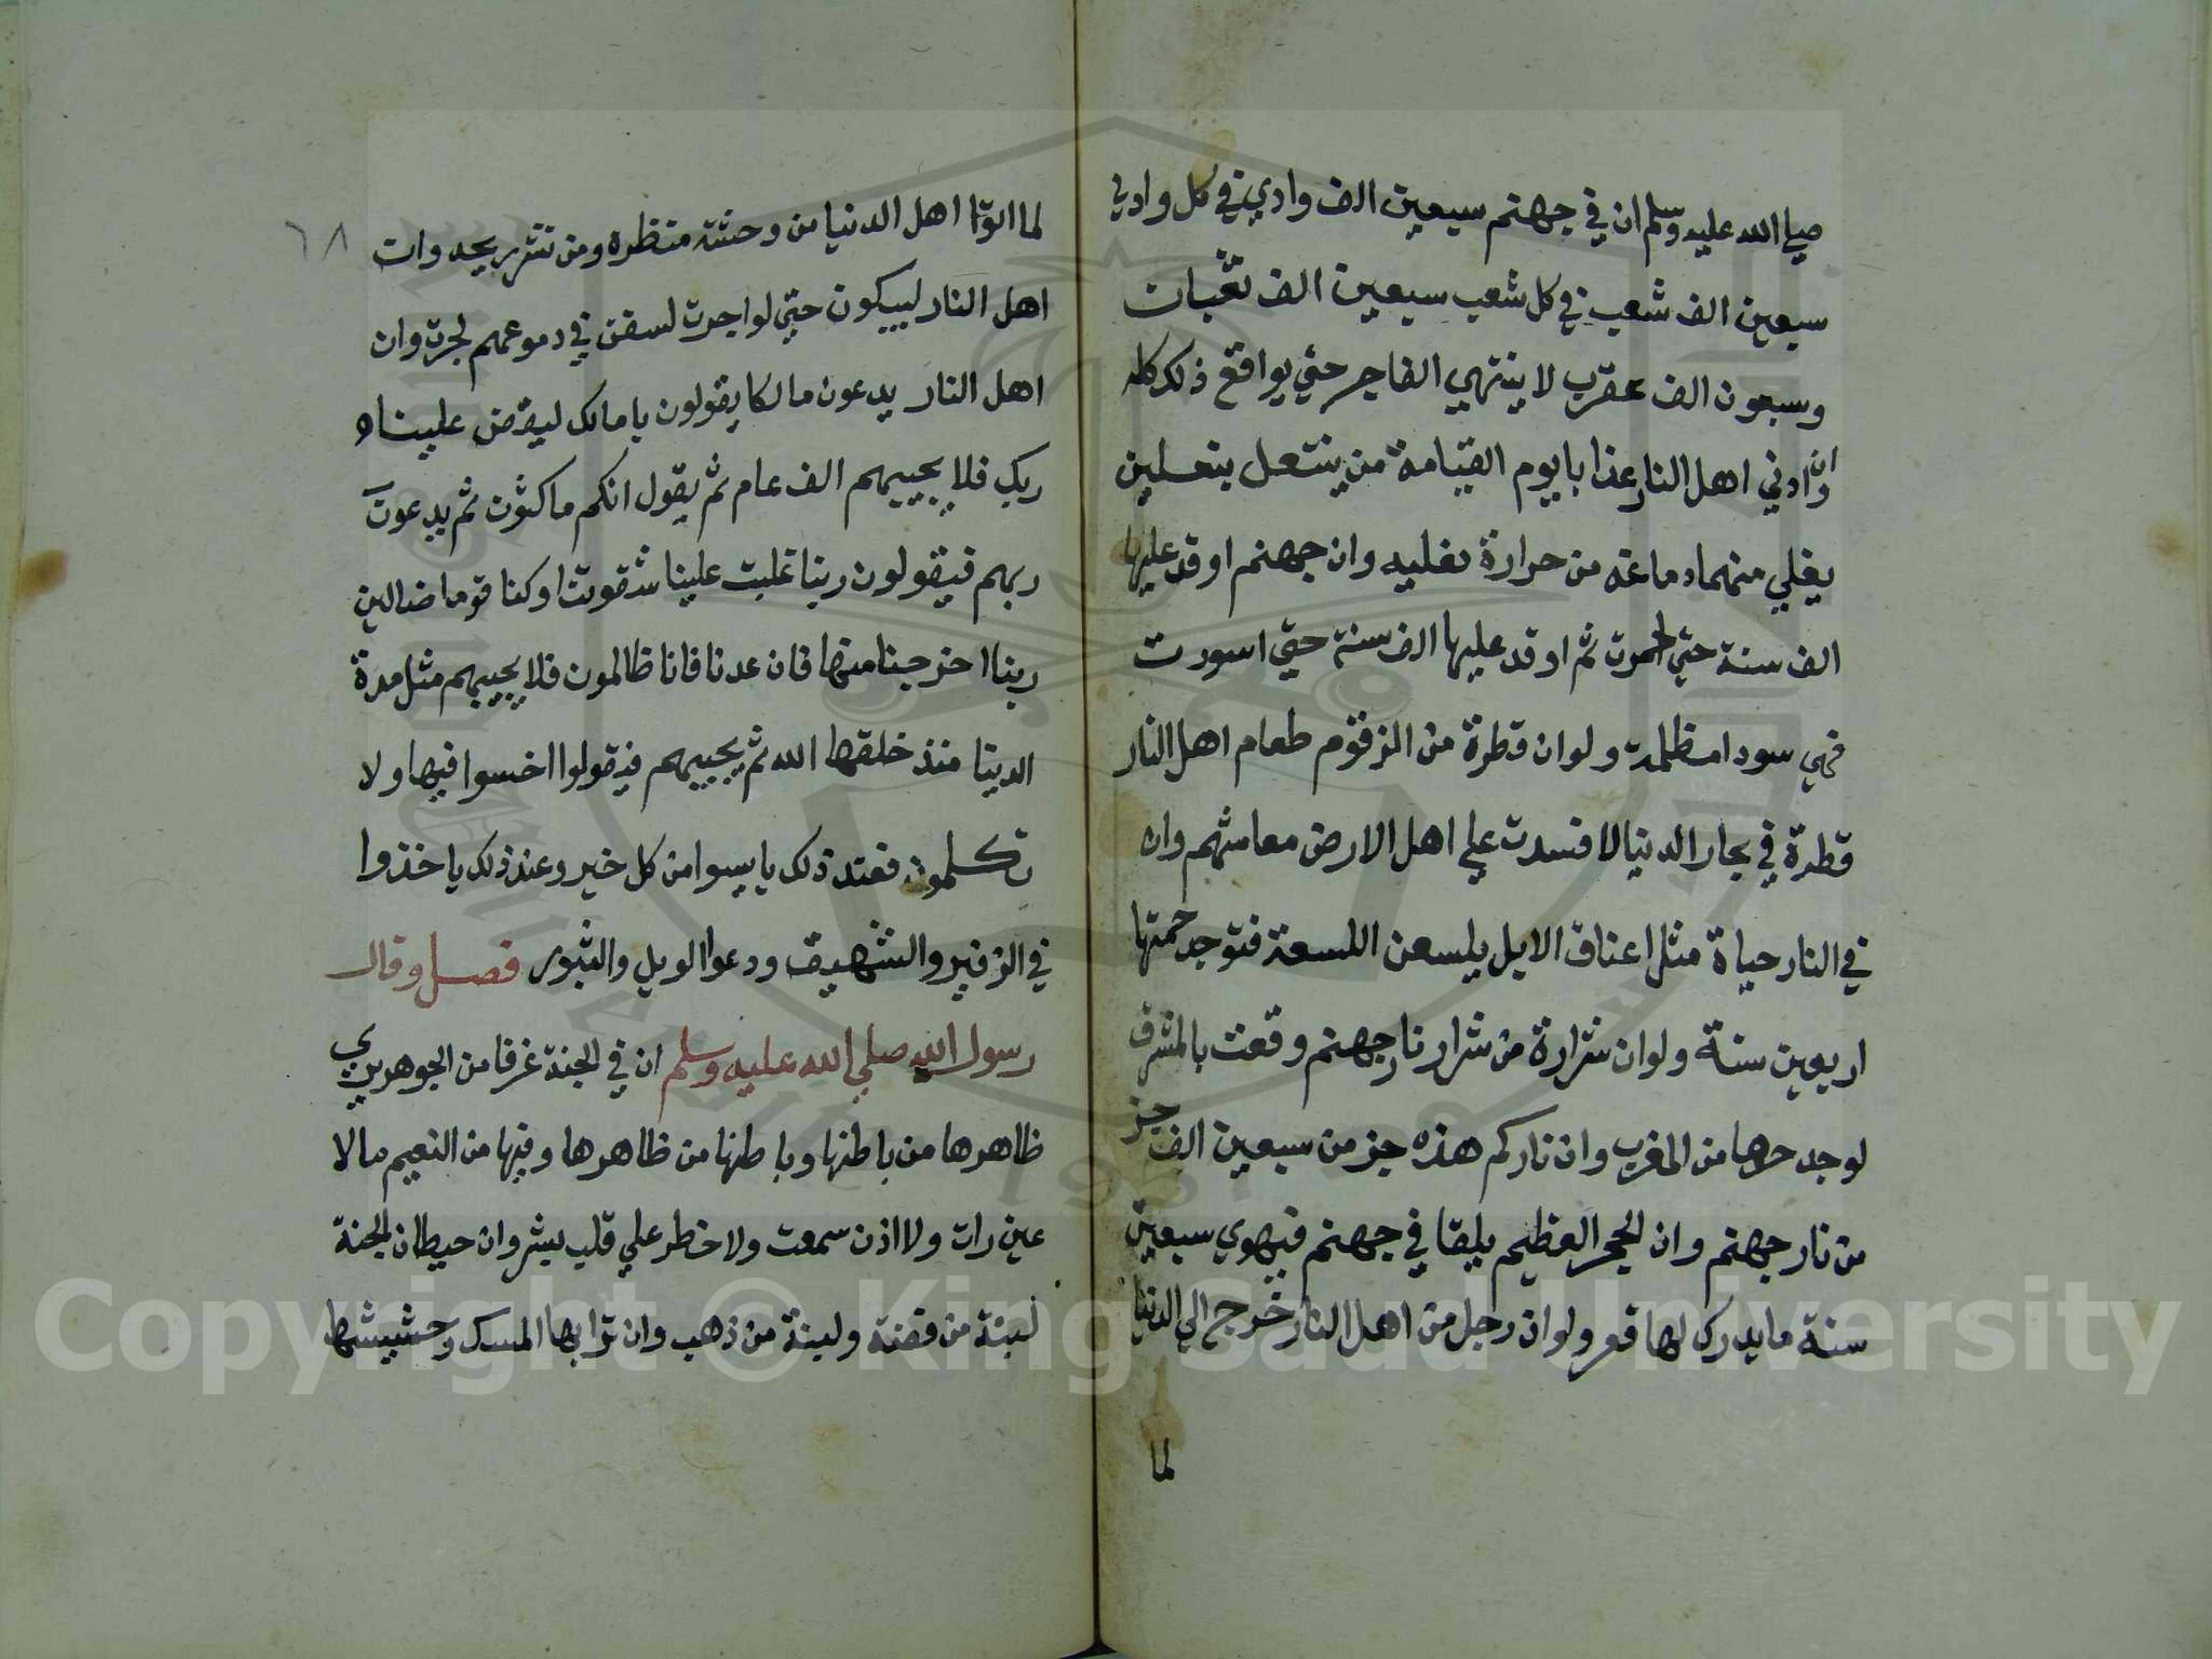 صلي الله عليه وسلم ان في جهنم سبعين الف وادي في كل وادي
سبعين الف شعب في كل شعب سبعين الف ثعبان
وسبعون الف عقرب لا ينتهي الفاجر حتي يواقع ذلك كله
وان ادني اهل النار عذابا يوم القيامة من ينتعل بنعلين
يغلي منهما دماغه من حرارة نعليه وان جهنم اوقد عليها
الف سنة حتي احمرت ثم اوقد عليها الف سنة حتي اسودت
فهي سودا مظلمة ولو ان قطرة من الزقوم طعام اهل النار
قطرة في بحار الدنيا لافسدت علي اهل الارض معاشهم وان
في النار حياة مثل اعناق الابل يلسعن اللسعة فتوجد حمتها
اربعين سنة ولو ان شرارة من شرار نار جهنم وقعت بالمشرق
لوجد حرها من المغرب وان ناركم هذه جز من سبعين الف جز
من نار جهنم وان الحجر العظيم يلقا في جهنم فيهوي سبعين
سنة ما يدرك لها قعر ولو ان رجل من اهل النار خرج الي الدنيا
لما
٦٨
لماتوا اهل الدنيا من وحشة منظره ومن نتن ريحه وان
اهل النار ليبكون حتي لو اجرت لسفن في دموعهم لجرت وان
اهل النار يدعون مالكا يقولون يا مالك ليقض علينا
ربك فلا يجيبهم الف عام ثم يقول انكم ماكثون ثم يدعون
ربهم فيقولون ربنا غلبت علينا شقوتنا وكنا قوما ضالين
ربنا اخرجنا منها فان عدنا فانا ظالمون فلا يجيبهم مثل مدة
الدينا منذ خلقها الله ثم يجيبهم فيقولوا اخسوا فيها ولا
تكلمون فعند ذلك ياييسوا من كل خير وعند ذلك ياخذوا
في الزفير والشهيق ودعوا الويل والثبور فصل وقال
رسول الله صلي الله عليه وسلم ان في الجنة غرفا من الجوهر يري
ظاهرها من باطنها وباطنها من ظاهرها وفيها من النعيم مالا
عين رات ولا اذن سمعت ولا خطر علي قلب بشر وان حيطان الجنة
لبنة من فضة ولبنة من ذهب وان ترابها المسك وحشيشها
Copyright © King Saud University